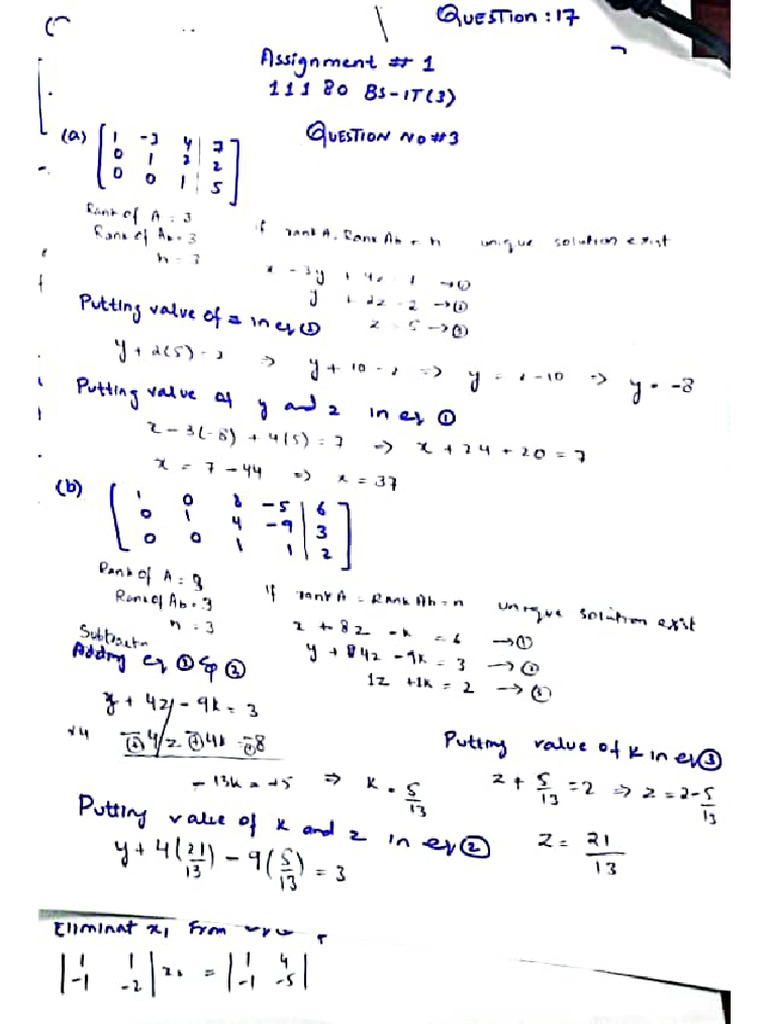 QUESTION : 17
Assignment # 1
11180 BS-IT(3)
QUESTION NO #3
(a) [ 1 -3 4 | 7
0 1 2 | 2
0 0 1 | 5 ]
Rank of A = 3
Rank of Ab = 3
n = 3
if rank A = Rank Ab = n unique solution exist
x - 3y + 4z = 7 → ①
y + 2z = 2 → ②
z = 5 → ③
Putting value of z in eq ②
y + 2(5) = 2 ⇒ y + 10 = 2 ⇒ y = 2 - 10 ⇒ y = -8
Putting value of y and z in eq ①
x - 3(-8) + 4(5) = 7 ⇒ x + 24 + 20 = 7
x = 7 - 44 ⇒ x = 37
(b) [ 1 0 8 -5 | 6
0 1 4 -9 | 3
0 0 1 1 | 2 ]
Rank of A = 3
Rank of Ab = 3
n = 3
If rank A = Rank Ab = n unique solution exist
x + 8z - k = 6 → ①
y + 84z - 9k = 3 → ②
1z + 1k = 2 → ③
Subtractn
Adding eq ① & ②
y + 4z - 9k = 3
4z 4k 8
- 13k = +5 ⇒ k = 5/13
Putting value of k in eq ③
z + 5/13 = 2 ⇒ z = 2 - 5/13
z = 21/13
Putting value of k and z in eq ②
y + 4(21/13) - 9(5/13) = 3
Eliminat x₁ from
| 1 1 | = | 1 4 |
| -1 -2 | | -1 -5 |